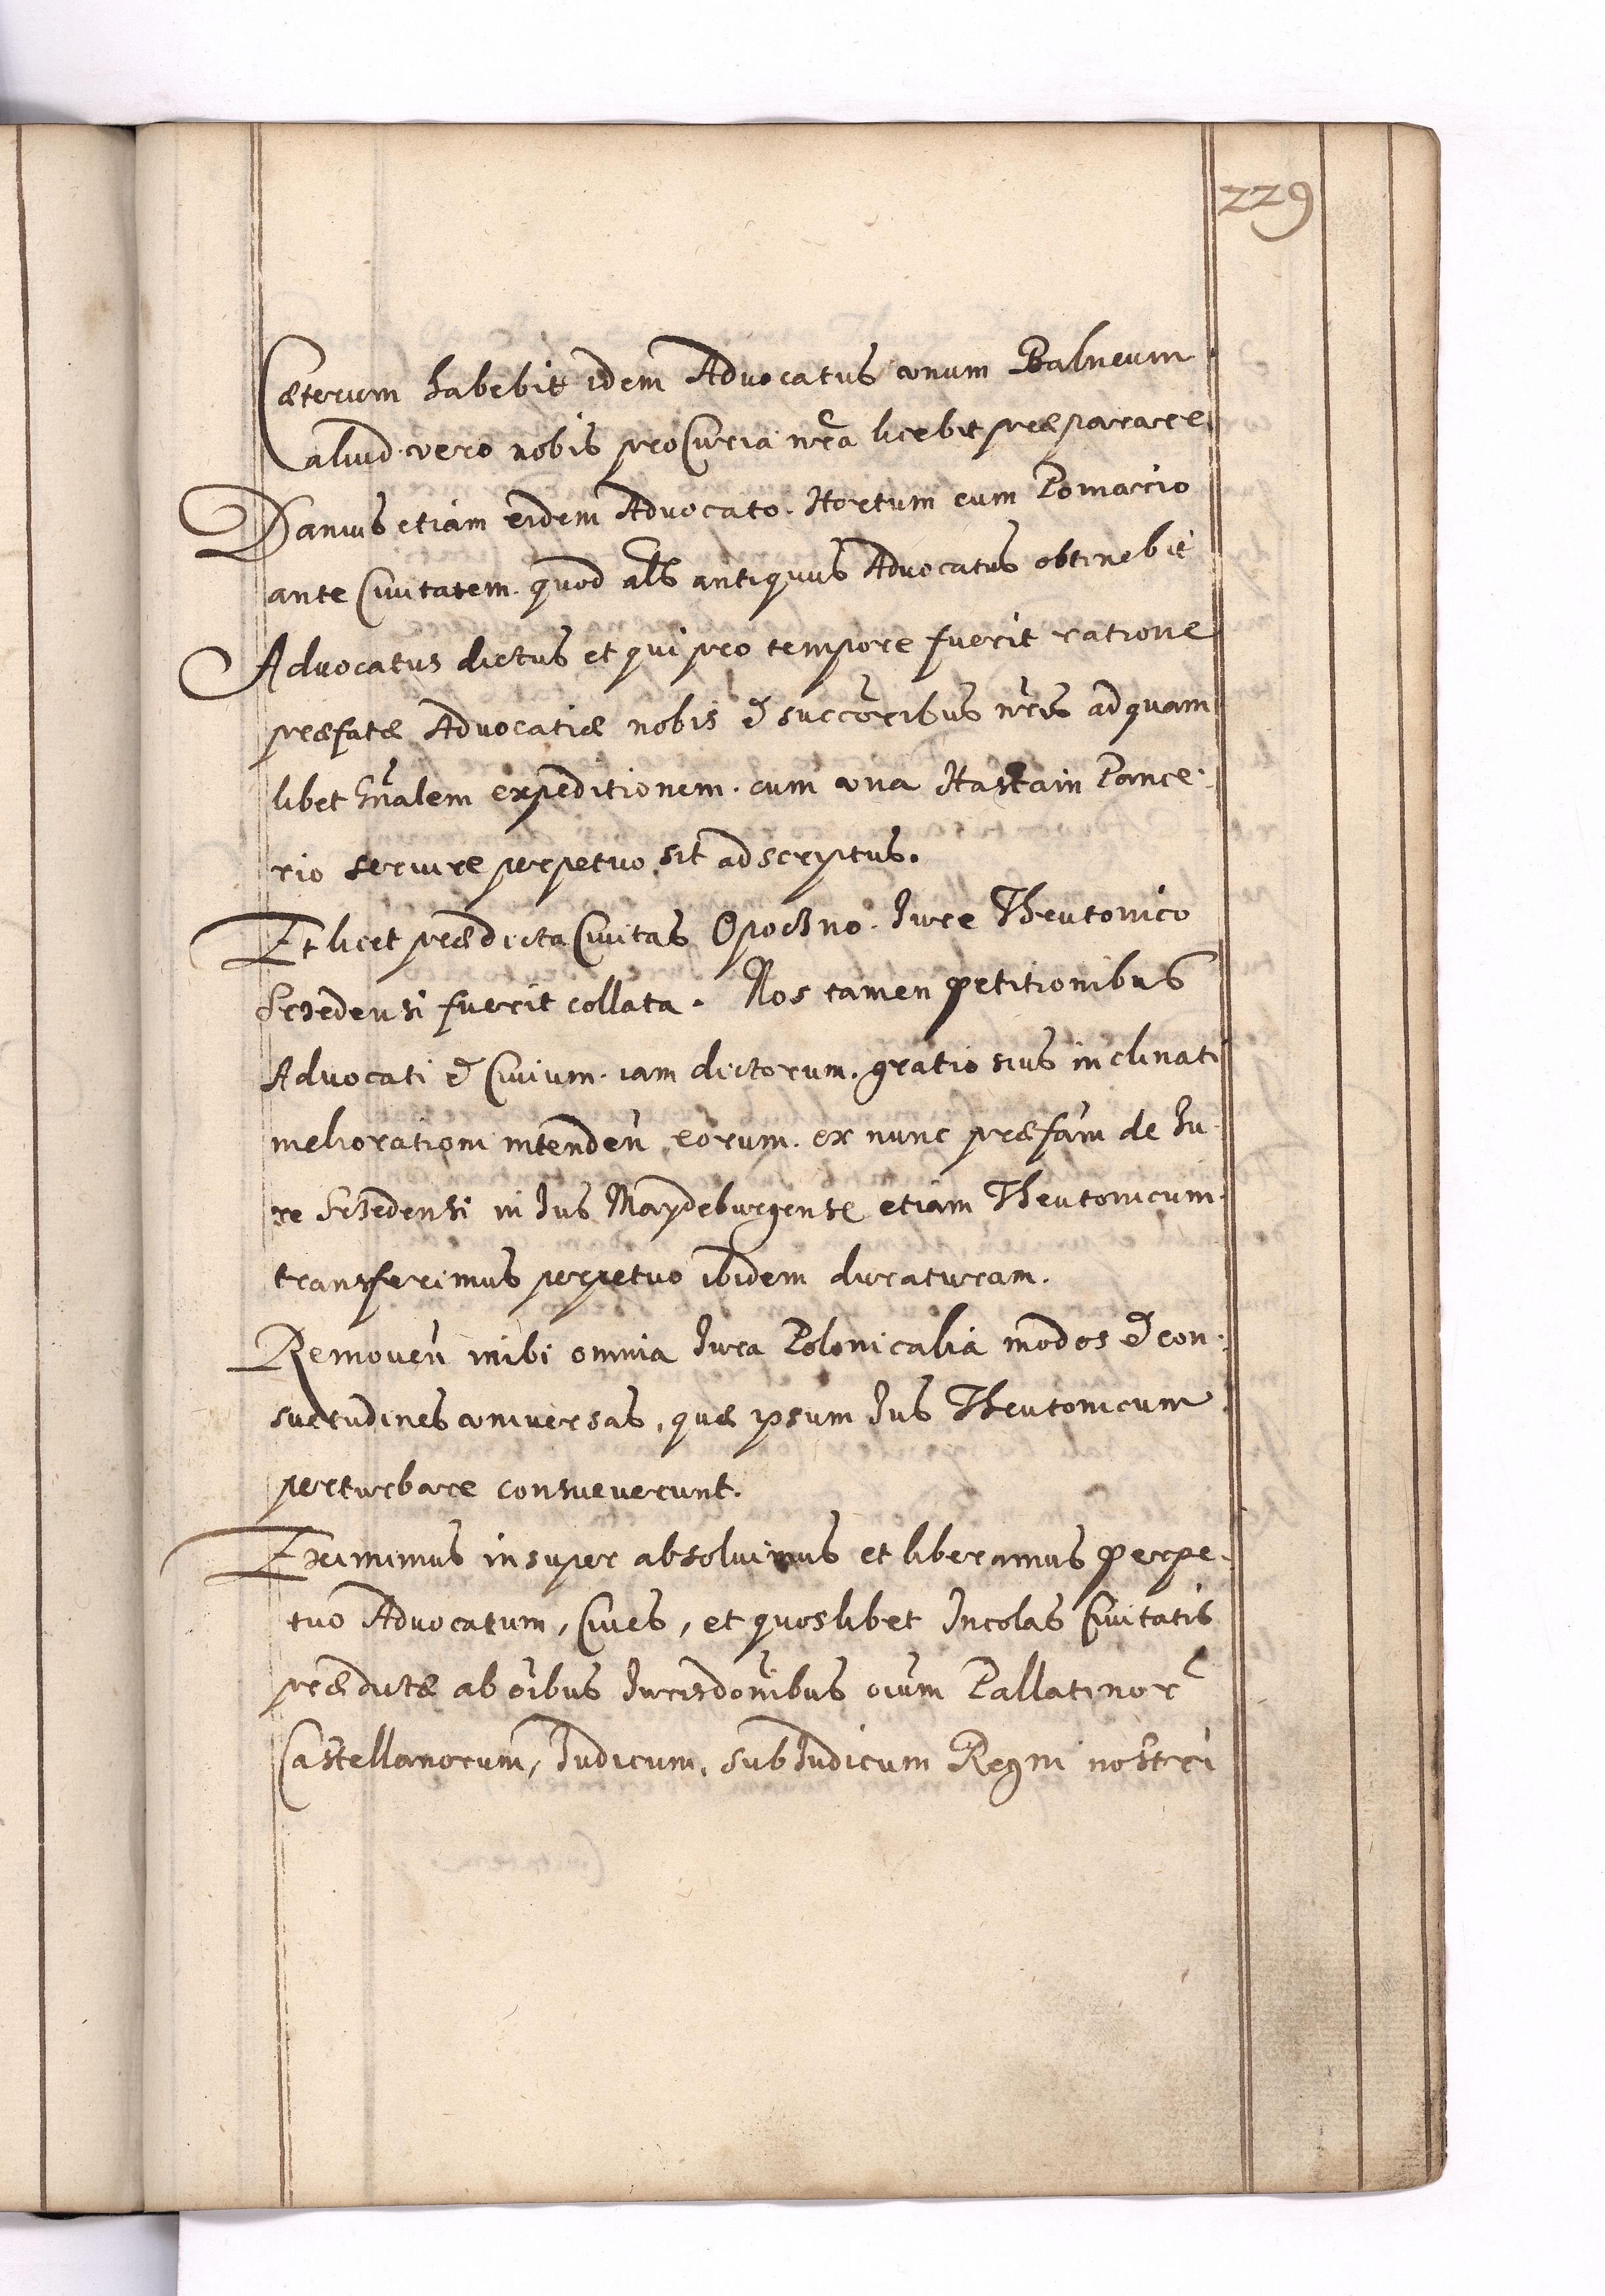 229
Cæterum habebit idem Advocatus vnum Balneum
aliud vero nobis pro Curia nr̃a licebit præparare.
Damus etiam eidem Advocato. Hortum cum Pomario
ante Civitatem. quod als antiquus Advocatus obtinebit
Advocatus dictus et qui pro tempore fuerit ratione
præfatæ Advocatiæ nobis & succoribus nr̃is ad quam
libet gñalem expeditionem. cum vna Hasta in Pance-
rio servire perpetuo sit adscriptus.
Et licet prædicta Civitas Opoczno. Jure Theutonico
Srzedensi fuerit collata. Nos tamen petitionibus
Advocati & Civium. iam dictorum. gratiosius inclinati
meliorationi intendeñ eorum. ex nunc præfãm de Ju-
re Srzedensi in Jus Maydeburgense etiam Theutonicum
transferimus perpetuo ibidem duraturam.
Removeñ inibi omnia Jura Polonicalia modos & con-
suetudines vniversas, quæ ipsum Jus Theutonicum
perturbare consueverunt.
Eximimus insuper absolvimus et liberamus perpe-
tuo Advocatum, Cives, et quoslibet Incolas Civitatis
prædictæ ab õibus Jurisdõnibus oium Pallatinor
Castellanorum, Judicum, subJudicum Regni nostri